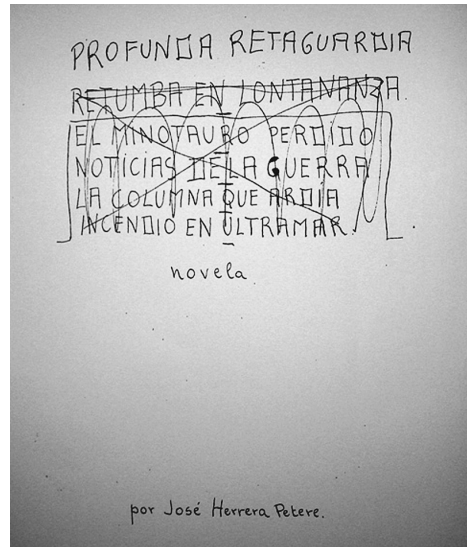 PROFUNDA RETAGUARDIA
RETUMBA EN LONTANANZA.
EL MINOTAURO PERDIDO
NOTICIAS DE LA GUERRA
LA COLUMNA QUE ARDIA
INCENDIO EN ULTRAMAR.
novela
por José Herrera Petere.